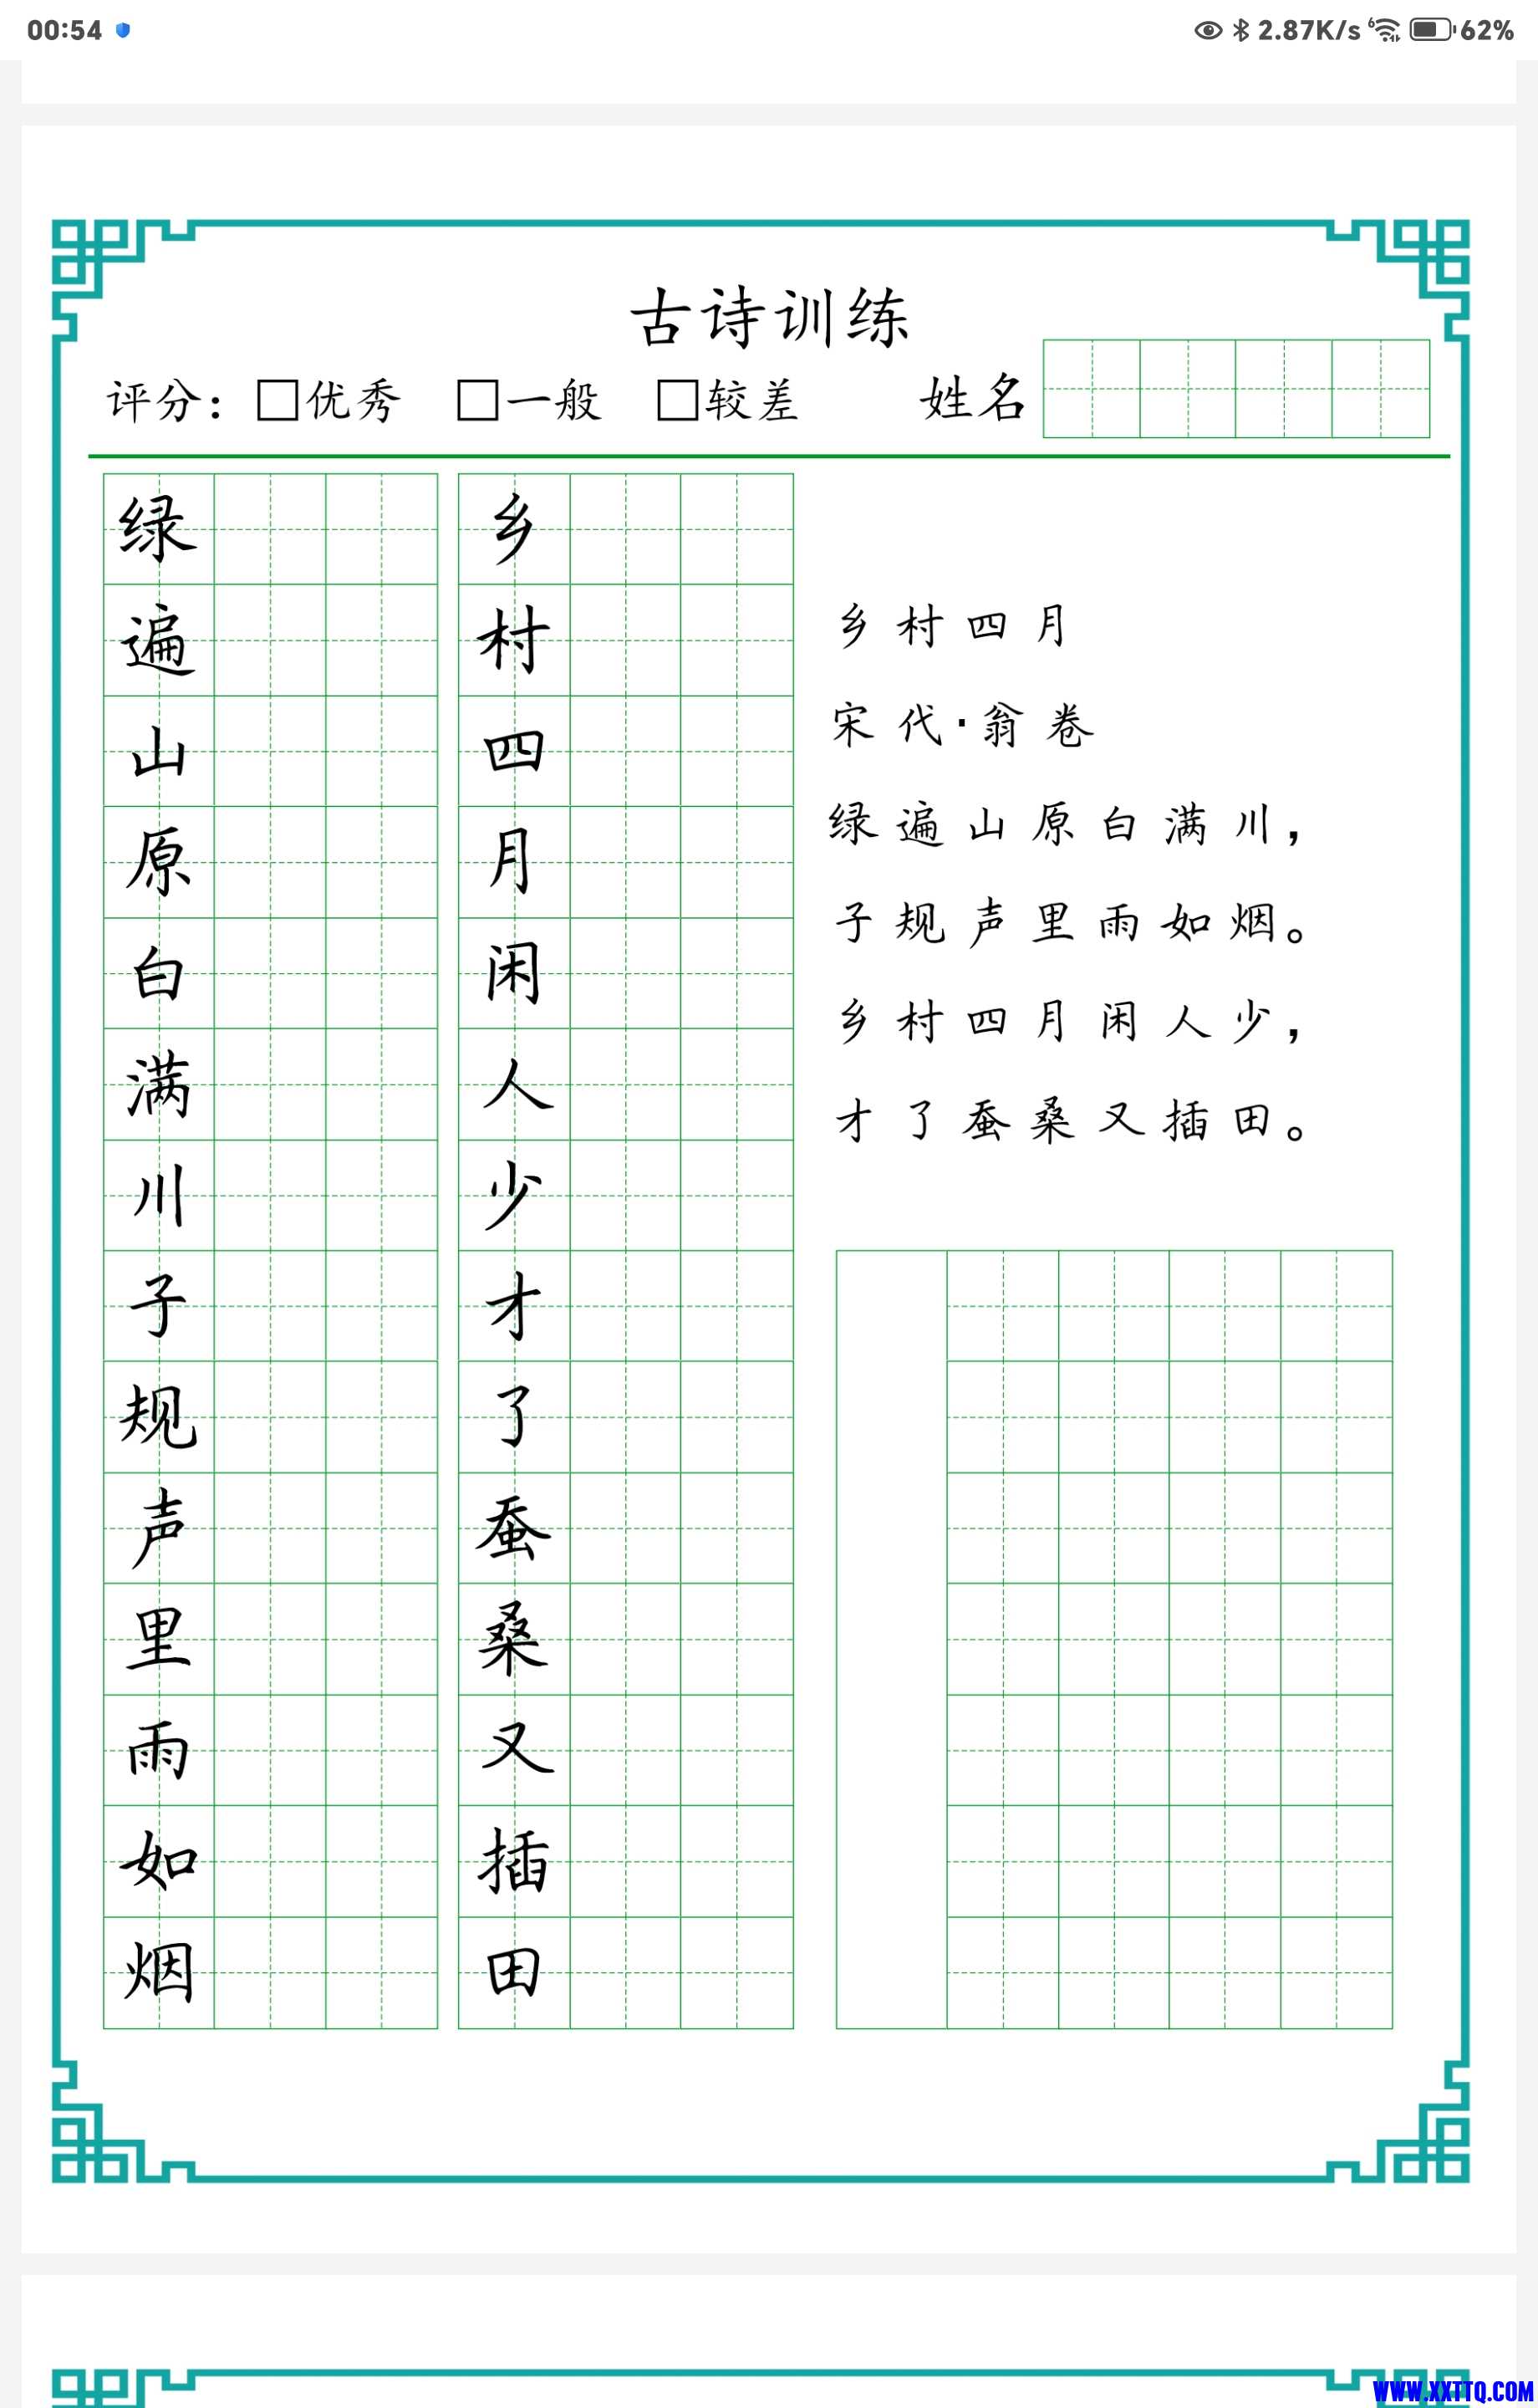 00:54 2.87K/s 6 62%
古诗训练
评分：□优秀 □一般 □较差 姓名
绿 乡
遍 村
山 四
原 月
白 闲
满 人
川 少
子 才
规 了
声 蚕
里 桑
雨 又
如 插
烟 田
乡村四月
宋代·翁卷
绿遍山原白满川，
子规声里雨如烟。
乡村四月闲人少，
才了蚕桑又插田。
WWW.XXTTQ.COM